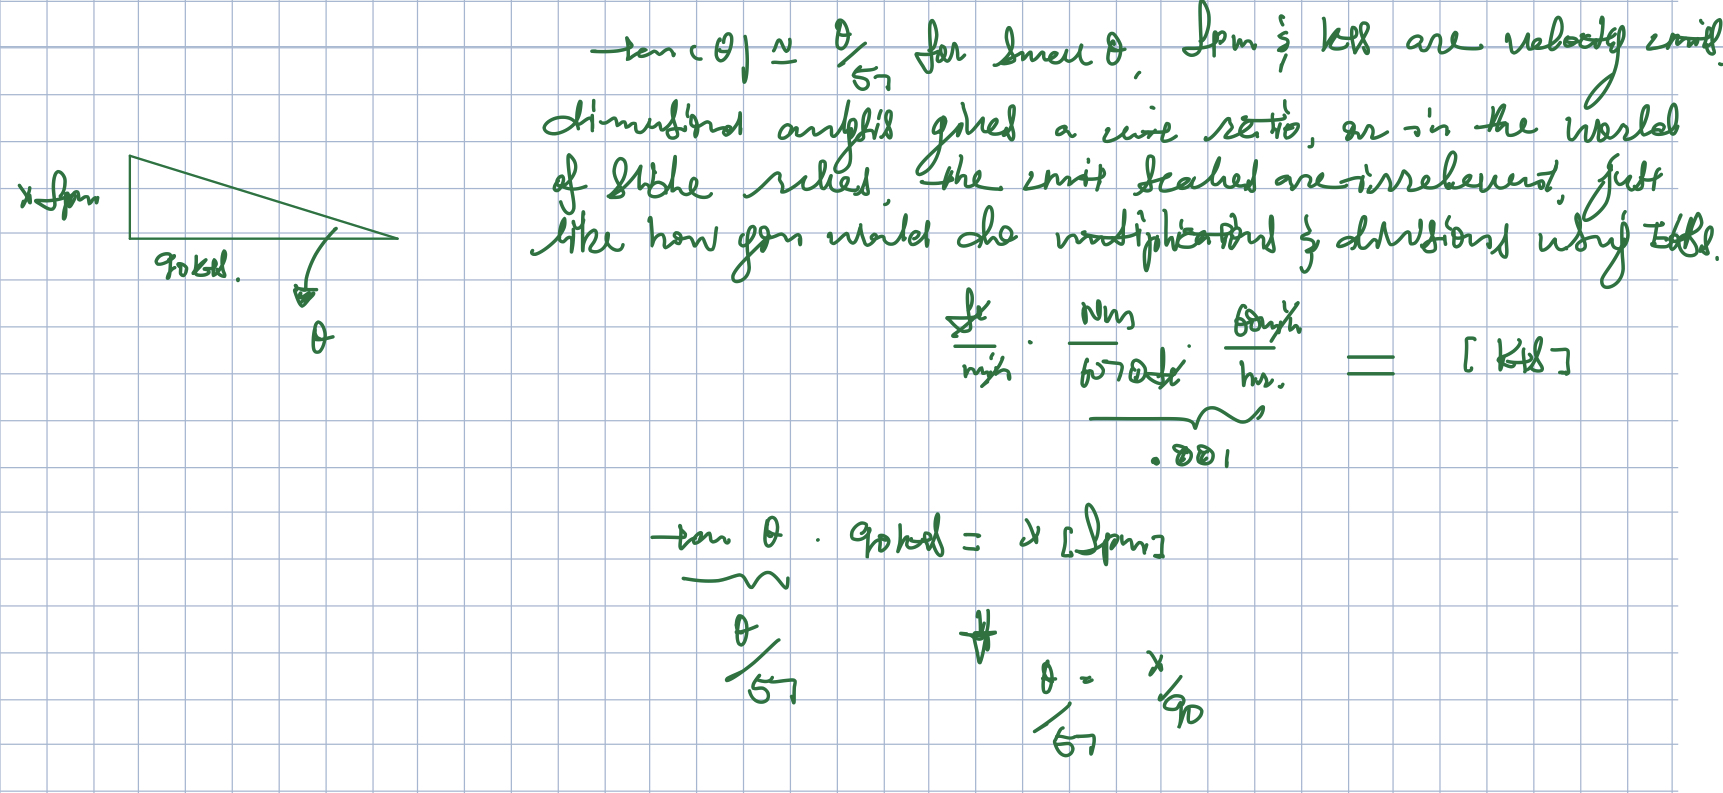 tan(θ) ≃ θ/57 for small θ. fpm & kts are velocity units.
dimensional analysis gives a nice ratio, as in the world
of slide rules, the unit scales are irrelevant, just
like how you would do multiplications & divisions using
x fpm
90 kts.
θ
ft/min · Nm/6070ft · 60min/hr. = [kts]
.001
tan θ · 90 kts = x [fpm]
θ/57
θ/57 = x/90